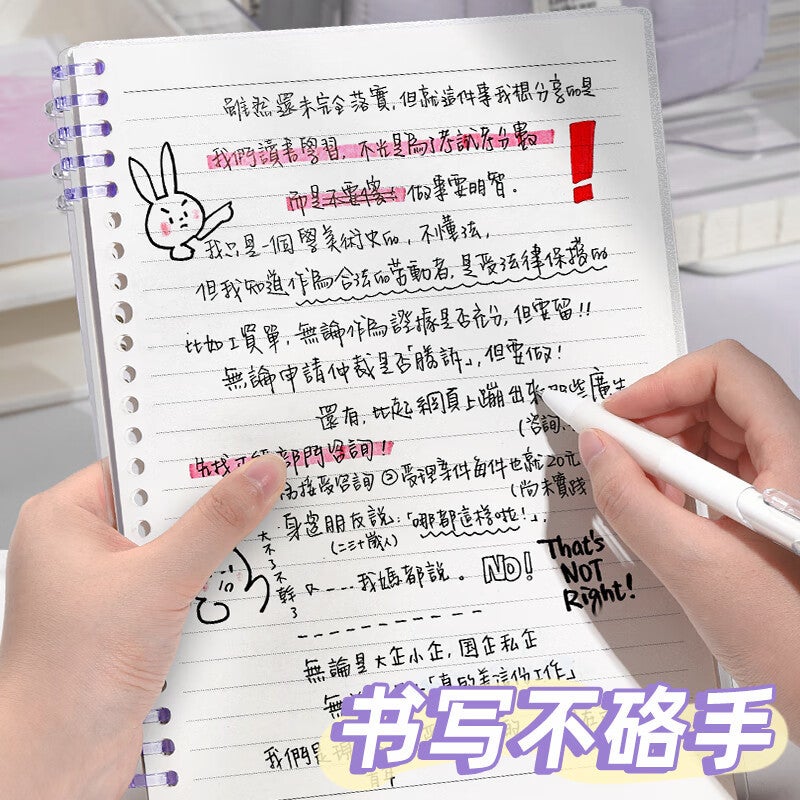 雖然還未完全落實,但就這件事我想分享的是
我們讀書學習,不光是為了考試考分數
而是不要傻,做事要明智。
我只是一個學美術史的,不懂法,
但我知道作為合法的勞動者,是受法律保護的
比如工資單,無論作為證據是否充分,但要留!!
無論申請仲裁是否「勝訴」,但要做!
還有,比起網頁上蹦出來那些廣告
(咨詢
先找 部門咨詢!
接受咨詢 ②受理案件每件也就20元
(尚未實踐
身邊朋友說:「哪都這樣啦!」,
(二三十歲人)
大不了不幹了
又----我媽都說。 NO!
That's
NOT
Right!
無論是大企小企,国企私企
無 「真的差這份工作」
我們是
书写不硌手